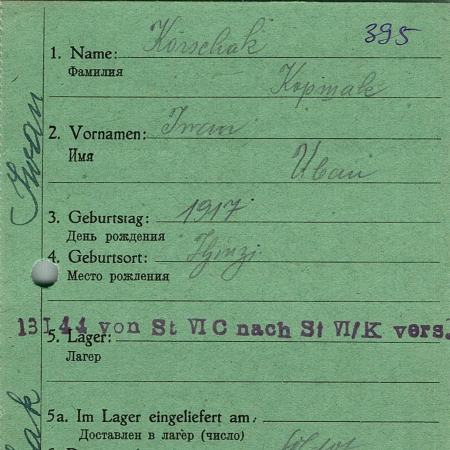 395
1. Name: Korschak
Фамилия
Коршак
2. Vornamen: Iwan
Имя
Иван
3. Geburtstag: 1917
День рождения
4. Geburtsort:
Место рождения
13 I 44 von St VI C nach St VI/K vers.
5. Lager:
Лагер
5a. Im Lager eingeliefert am:
Доставлен в лагѐр (число)
Iwan